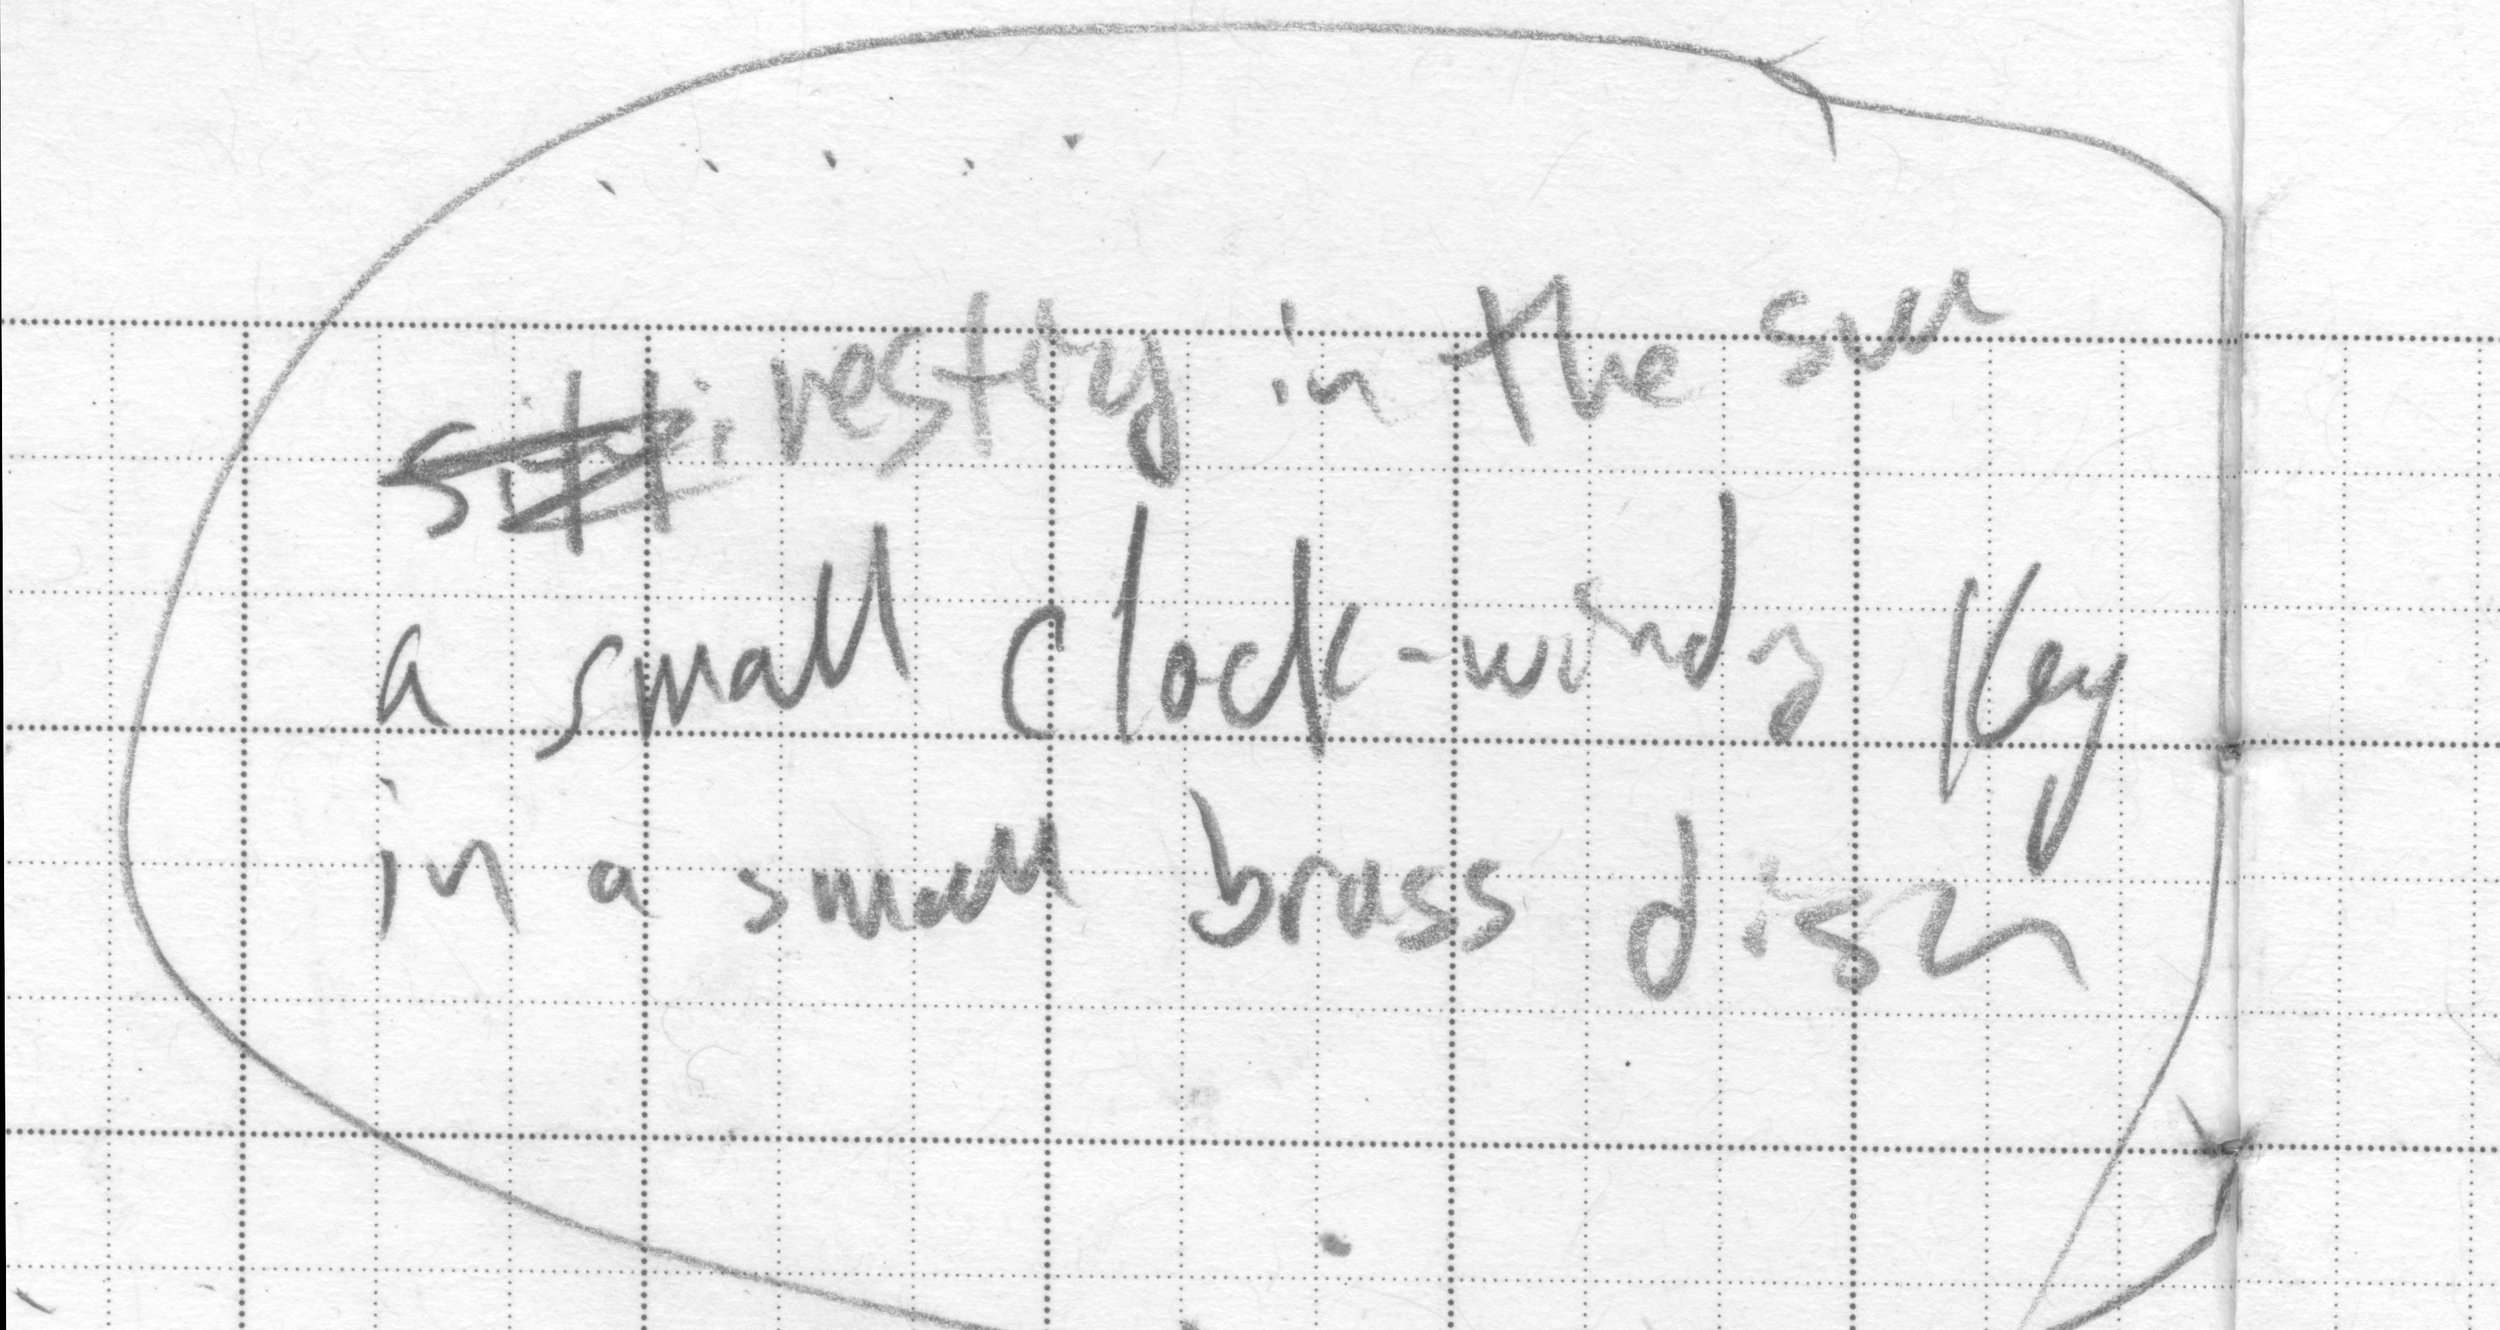 ..... 
resting in the sun
a small clock-winding key
in a small brass dish